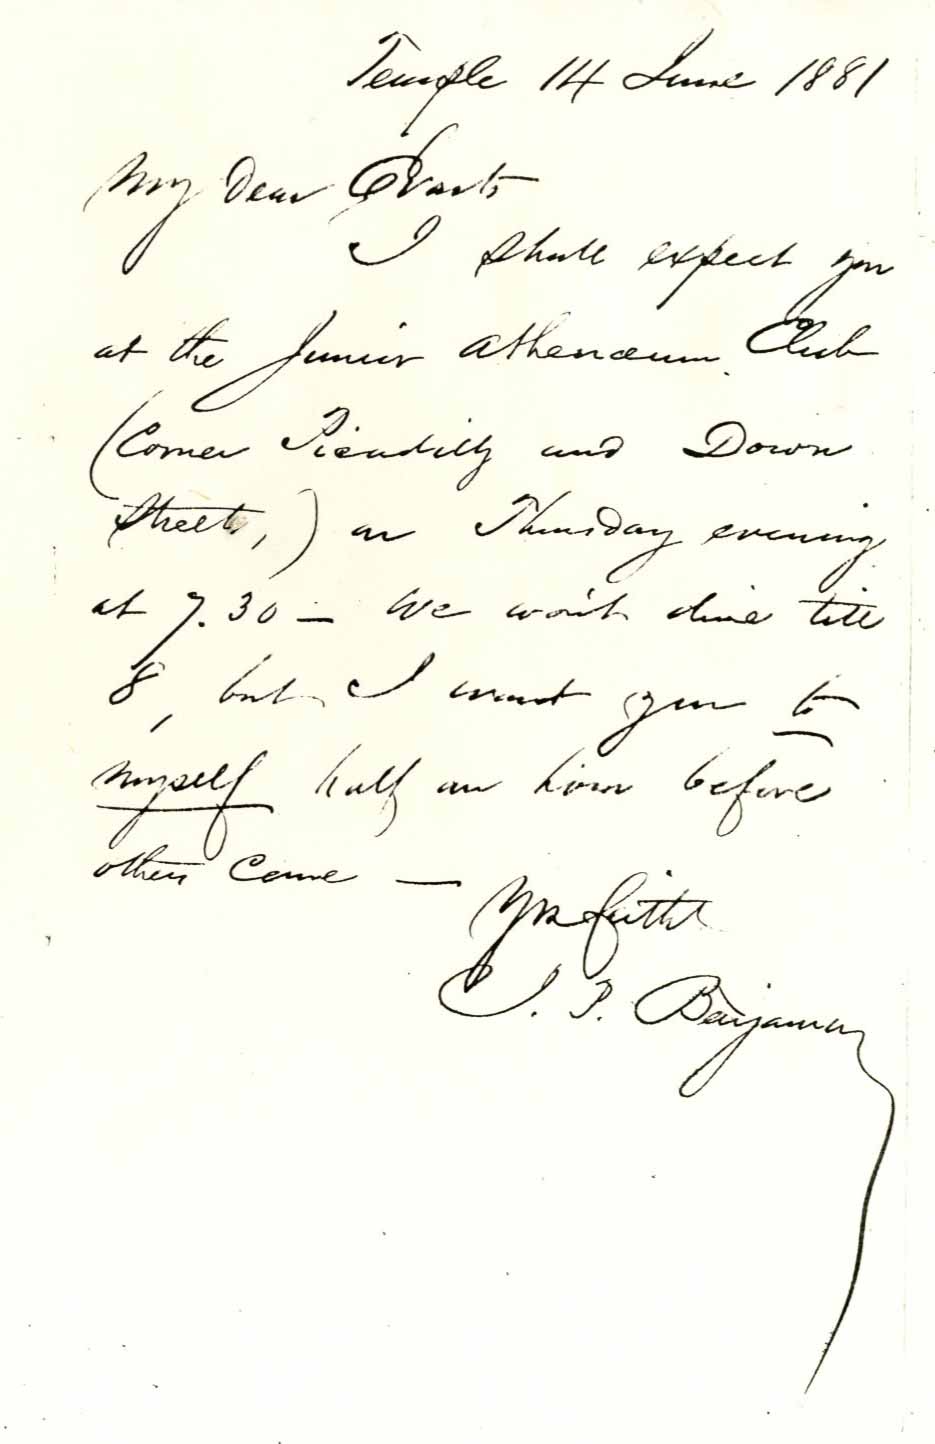 Temple 14 June 1881
My dear Evarts
I shall expect you
at the Junior Athenæum Club
(Corner Picadilly and Down
Street,) on Thursday evening
at 7.30 — We won't dine till
8, but I want you to
myself half an hour before
others come —
Yrs faithl
J. P. Benjamin